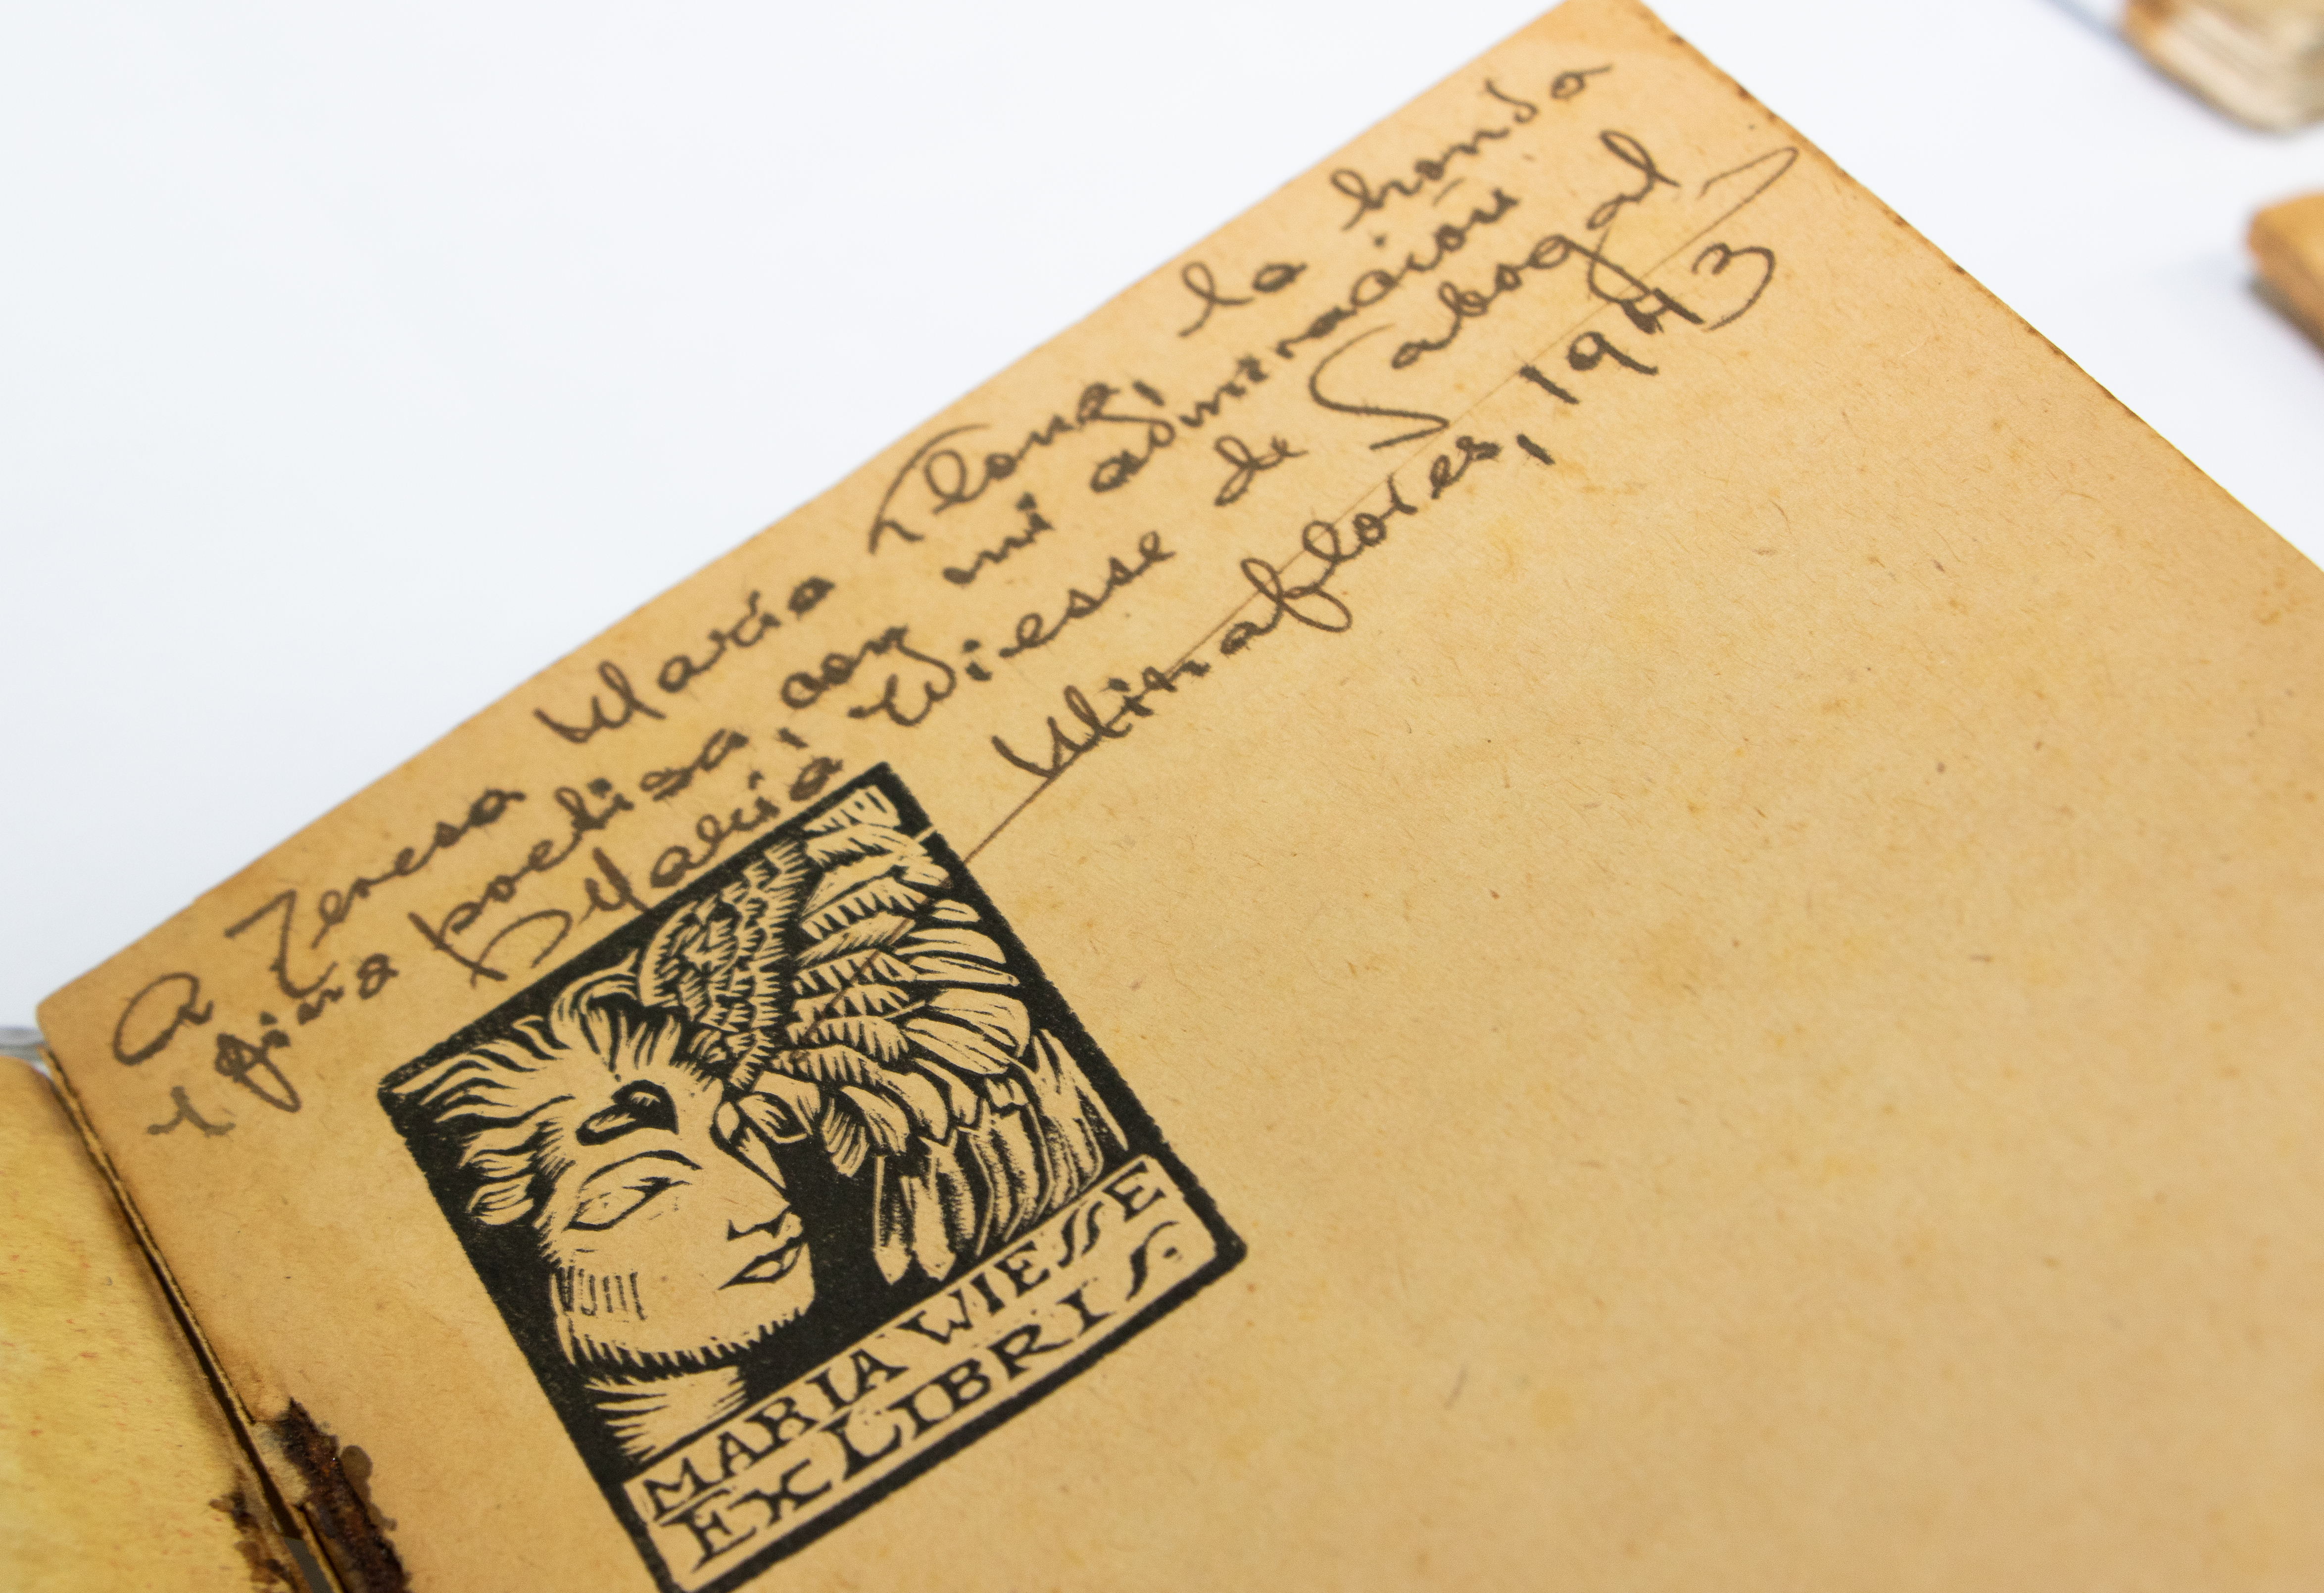 A Teresa María Llona, la honda
y fina poetisa, con mi admiración
María Wiesse de Sabogal
Miraflores, 1943
MARIA WIESSE
EX LIBRIS.